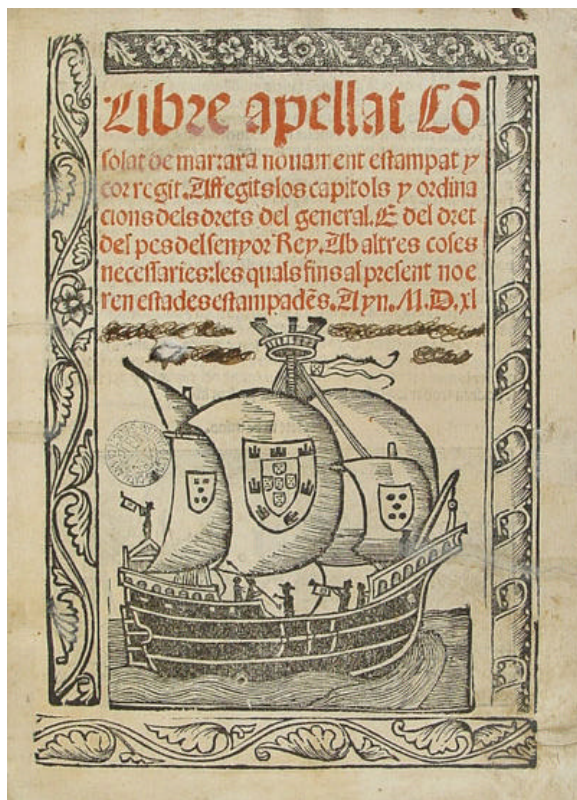 Libre apellat Cõ
solat de mar: ara nouament estampat y
corregit. Affegits los capitols y ordina
cions dels drets del general. E del dret
del pes del senyor Rey. Ab altres coses
necessaries: les quals fins al present no e
ren estades estampades. Ayn. M.D.xl